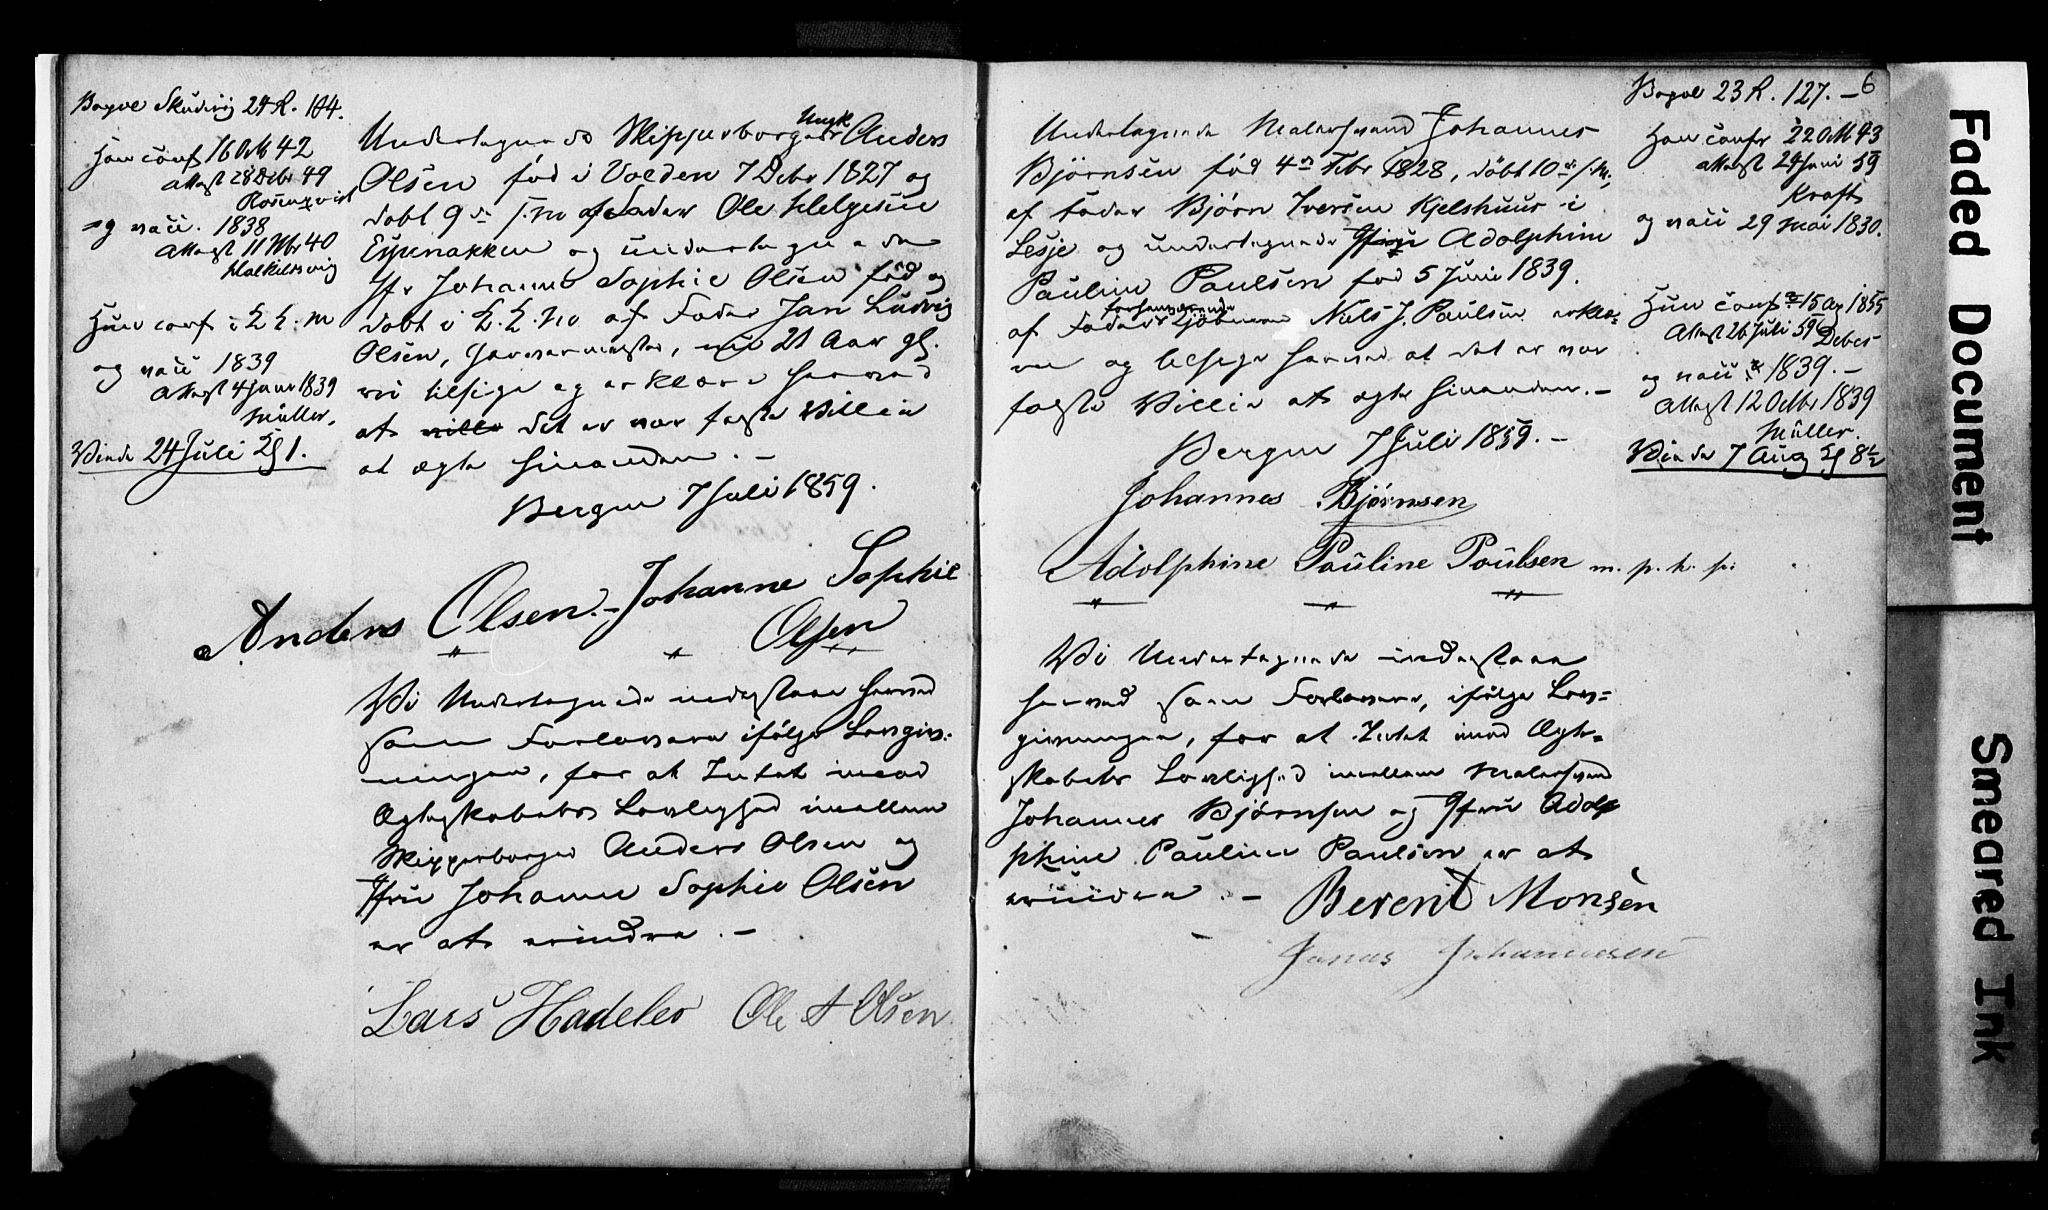 Bagve Skudevig 24 R. 104.
Han conf 16 Octb 42
Attest 28 Decbr 49
Rosenqvist
og vacc. 1838
Attest 11 Nbr 40
og vacc 1839
Attest 4 Juni 1839
Müller.
Viede 24 Juli Kl 1.
Undertegnede Skipperborger Ungk Anders
Olsen fød i Volden 7 Decbr 1827 og
døbt 9de s. M. af Fader Ole Helgesen
Espenakken og undertegnede
Jfr Johanne Sophie Olsen fød og
døbt i af Fader Jan Ludvig
Olsen, 21 Aar gl.
vi tilsige og erklære herved
at ville det er vor faste Villie
at ægte hinanden. –
Bergen 7 Juli 1859.
Anders Olsen. – Johanne Sophie
Olsen
Vi Undertegnede indestaae herved
som Forlovere ifølge Lovgiv-
ningen, for at Intet imod
Ægteskabets Lovlighed imellem
Skipperborger Anders Olsen og
Jfru Johanne Sophie Olsen
er at erindre. –
Lars Hadeler Ole A Olsen
6
Bagve 23 R. 127. –
Han confr 22 Oct 43
Attest 24 Juni 59
Kraft
og vacc 29 Mai 1830.
Hun conf 15 Ap 1855
Attest 26 Juli 59 Debes
og vacc 1839. –
Attest 12 Octbr 1839
Müller.
Viede 7 Aug Kl 8½
Undertegnede Malersvend Johannes
Bjørnsen fød 4de Febr 1828, døbt 10de s. M.,
af Fader Bjørn Iversen Kjelshuus i
Lesje og undertegnede Jfru Adolphine
Pauline Paulsen fød 5 Juni 1839.
af Fader forhenværende Kjøbmand Niels J. Paulsen erklæ-
re og tilsige herved at det er vor
faste Villie at ægte hinanden. –
Bergen 7 Juli 1859. –
Johannes Bjørnsen
Adolphine Pauline Poulsen m. p. h. p.
Vi Undertegnede indestaae
herved som Forlovere, ifølge Lov-
givningen, for at Intet imod Ægte-
skabets Lovlighed imellem Malersvend
Johannes Bjørnsen og Jfru Adol
phine Pauline Paulsen er at
erindre. – Berent Monsen
Jonas Johannesen
Faded Document
Smeared Ink